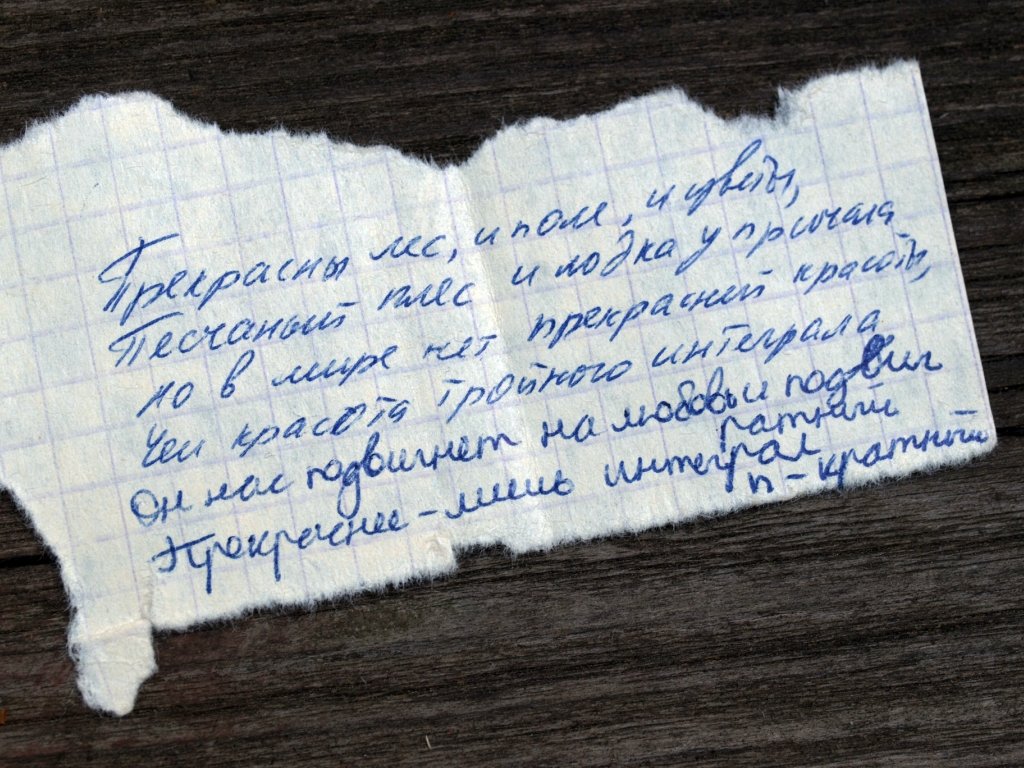 Прекрасны лес, и поле, и цветы,
Песчаный плес и лодка у причала
но в мире нет прекрасней красоты,
Чем красота тройного интеграла
Он нас подвигнет на любовь и подвиг
ратный
Прекраснее - лишь интеграл
n - кратный